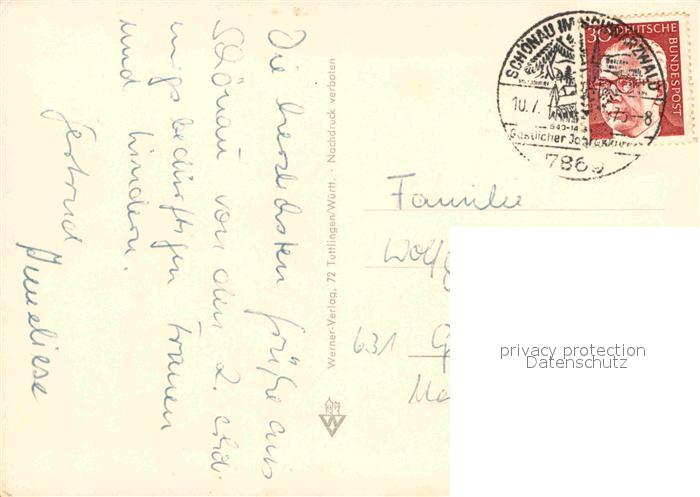 Die herzlichsten Grüße aus
Schönau von den 2 erho-
lungsbedürftigen Frauen
und Kindern.
Gertrud
Anneliese
Werner-Verlag, 72 Tuttlingen/Württ. · Nachdruck verboten
SCHÖNAU IM SCHWARZWALD
10.7. 75-8
540-14
Gastlicher
7869
30
DEUTSCHE
BUNDESPOST
Familie
Wolfg
631 G
privacy protection
Datenschutz